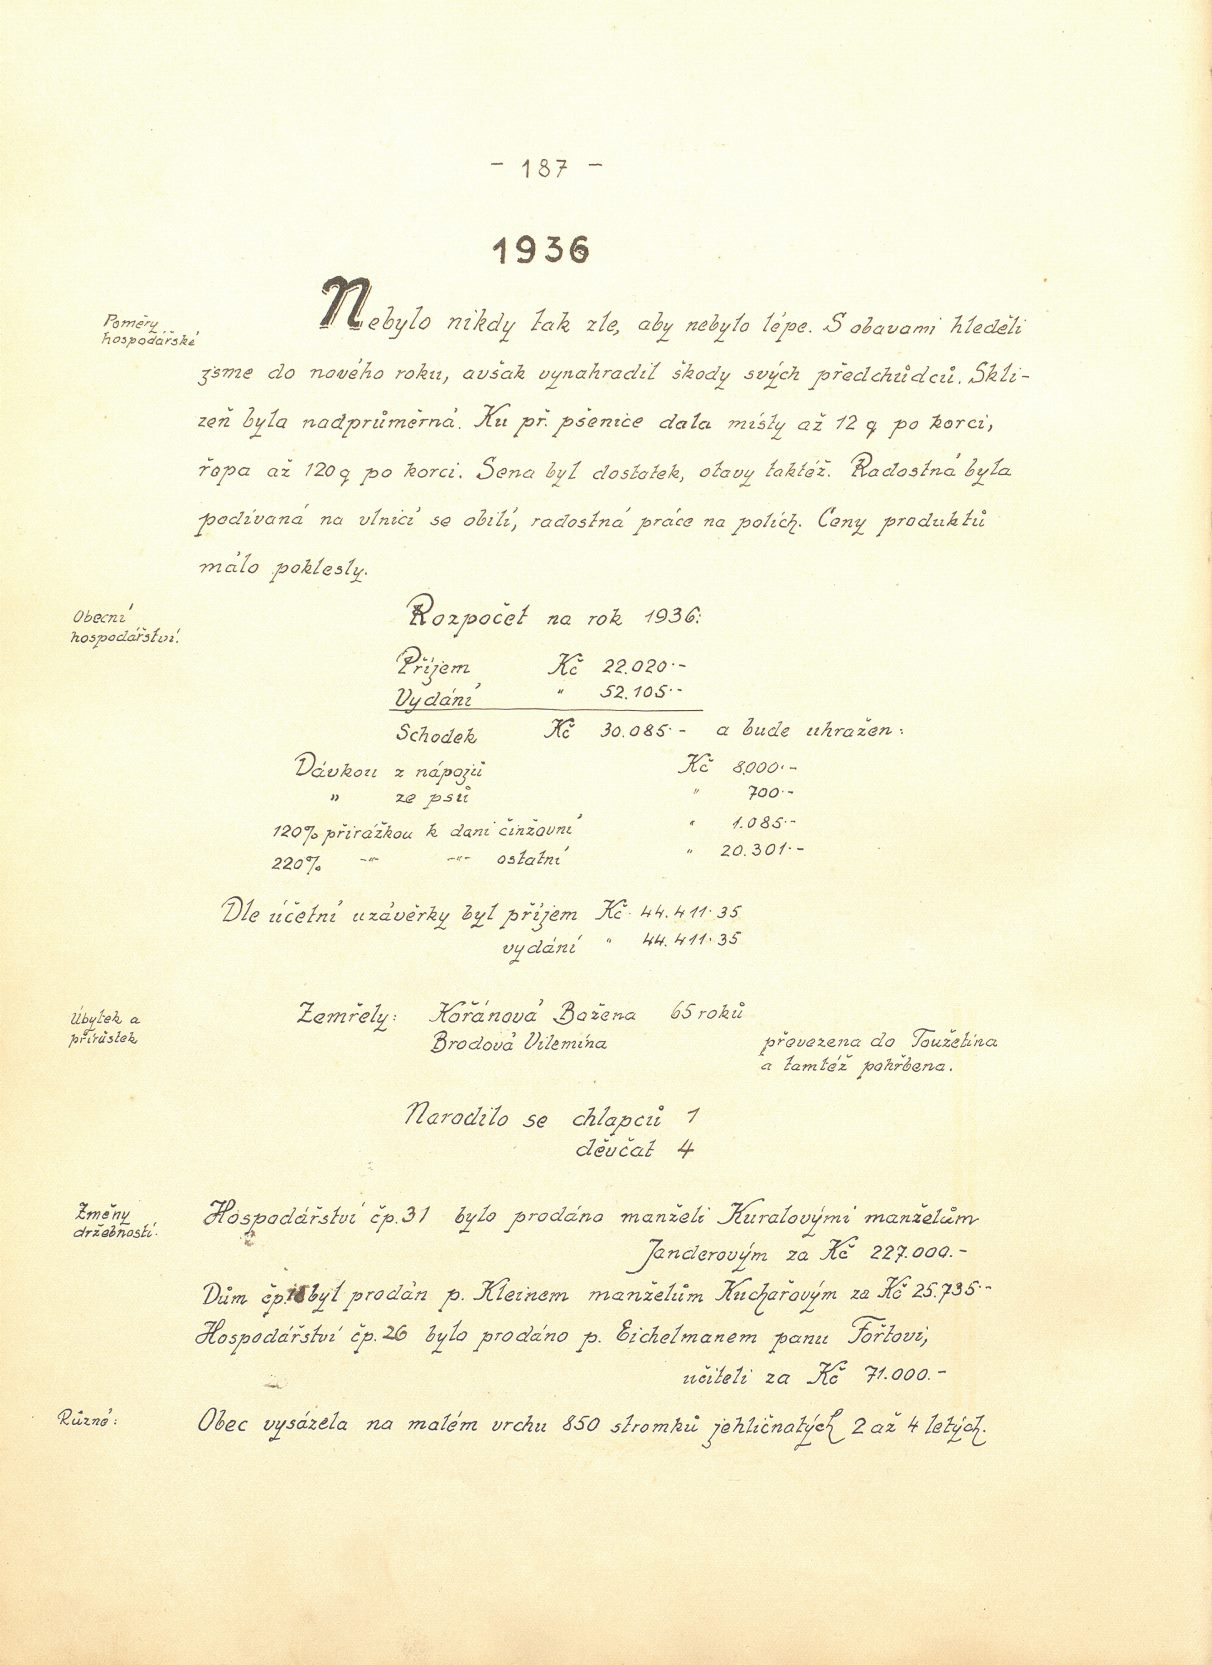 - 187 -
1936
Poměry
hospodářské
Nebylo nikdy tak zle, aby nebylo lépe. S obavami hleděli
jsme do nového roku, avšak vynahradil škody svých předchůdců. Skli-
zeň byla nadprůměrná. Ku př. pšenice dala místy až 12 q po korci,
řepa až 120 q po korci. Sena byl dostatek, otavy taktéž. Radostná byla
podívaná na vlnící se obilí, radostná práce na polích. Ceny produktů
málo poklesly.
Obecní
hospodářství.
Rozpočet na rok 1936:
Příjem Kč 22.020·-
Vydání " 52.105·-
Schodek Kč 30.085·- a bude uhražen:
Dávkou z nápojů Kč 8.000·-
" ze psů " 700·-
120% přirážkou k dani činžovní " 1.085·-
220% -"- -"- ostatní " 20.301·-
Dle účetní uzávěrky byl příjem Kč 44.411·35
vydání " 44.411·35
Úbytek a
přírůstek
Zemřely: Kořánová Božena 65 roků
Brodová Vilemína převezena do Toužetína
a tamtéž pohřbena.
Narodilo se chlapců 1
děvčat 4
Změny
držebností.
Hospodářství čp. 31 bylo prodáno manželi Kuralovými manželům
Janderovým za Kč 227.000.-
Dům čp. byl prodán p. Kleinem manželům Kuchařovým za Kč 25.735·-
Hospodářství čp. 26 bylo prodáno p. Eichelmanem panu Fořtovi,
učiteli za Kč 71.000.-
Různé:
Obec vysázela na malém vrchu 850 stromků jehličnatých 2 až 4 letých.